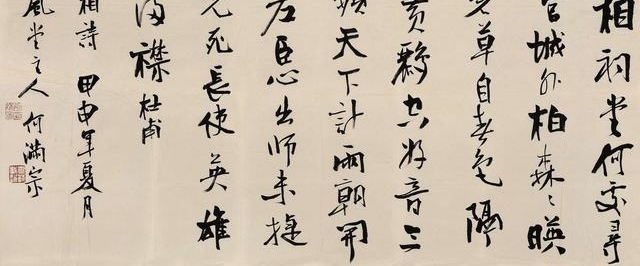 相祠堂何處尋
官城外柏森々暎
草自春色隔
黃鸝空好音三
天下計兩朝開
老臣心出師未捷
先死長使英雄
滿襟杜甫
相詩甲申年夏月
風堂主人何滿宗